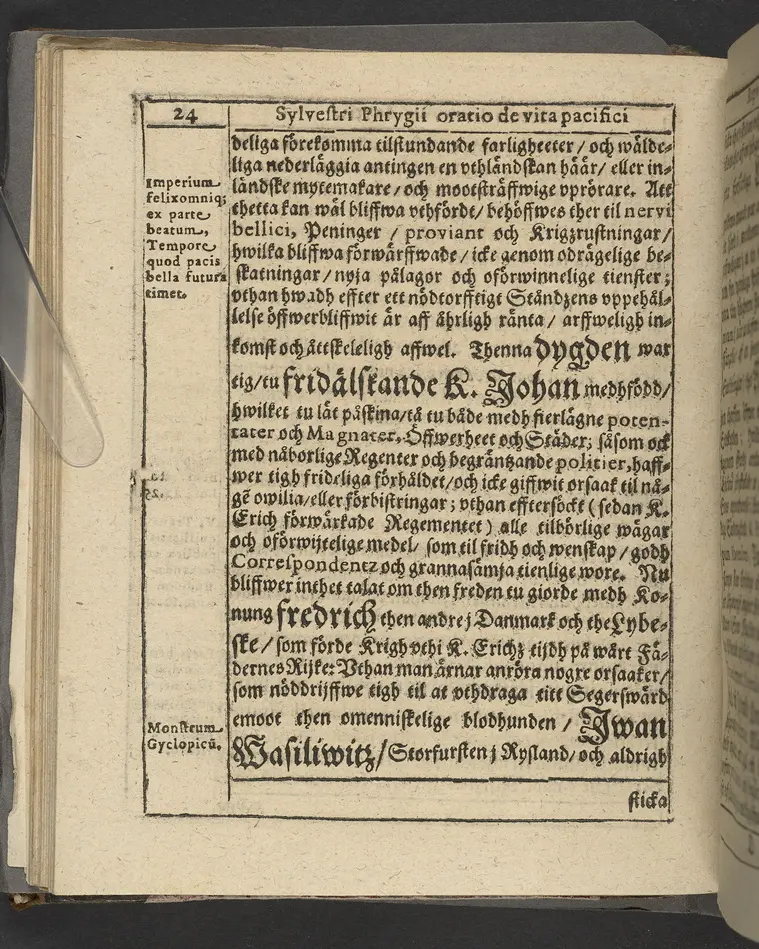 24
Sylvestri Phrygii oratio de vita pacifici
deliga förekomma tilstundande farligheeter / och wälde-
liga nederläggia antingen en vthländskan häär / eller in-
ländske mytemakare / och mootsträffwige vprörare. Att
thetta kan wäl bliffwa vthfördt / behöffwes ther til nervi
bellici, Peninger / proviant och Krigzrustningar /
hwilka bliffwa förwärffwade / icke genom odrägelige be-
skatningar / nyia pålagor och oförwinnelige tienster;
vthan hwadh effter ett nödtorfftigt Ståndzens vppehäl-
lelse öffwerbliffwit är aff ährligh ränta / arffweligh in-
komst och ättskeleligh affwel. Thenna dygden war
tig / tu fridälskande K. Johan medhfödd /
hwilket tu lät påskina / tå tu både medh fierlägne poten-
tater och Magnater, Öffwerheet och Städer; såsom ock
med nåborlige Regenter och begräntzande politier, haff-
wer tigh frideliga förhåldet / och icke giffwit orsaak til nå-
gē owilia / eller förbistringar; vthan efftersöckt ( sedan K.
Erich förwärkade Regementet ) alle tilbörlige wägar
och oförwijtelige medel / som til fridh och wenskap / godh
Correspondentz och grannasämja tienlige wore. Nu
bliffwer inthet talat om then freden tu giorde medh Ko-
nung fredrich then andre j Danmark och the Lybe-
ske / som förde Krigh vthi K. Erichz tijdh på wårt Fä-
dernes Rijke: Vthan man ärnar anröra nogre orsaaker /
som nöddrijffwe tigh til at vthdraga titt Segerswärd
emoot then omenniskelige blodhunden / Jwan
Wasiliwitz / Storfursten j Rysland / och aldrigh
sticka
Imperium
felix omniq;
ex parte
beatum,
Tempore
quod pacis
bella futura
timet.
Monstrum
Cyclopicū.